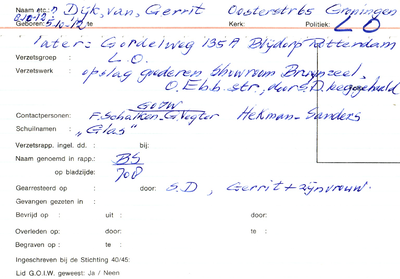 Naam etc: Dijk, van, Gerrit Oosterstr 6 Groningen
Geboren: 5-10-'12 te Kerk: Politiek: LO
later: Gordelweg 135A Blijdorp Rotterdam
Verzetsgroep : L.O.
Verzetswerk : opslag goederen bouwram Bruynzeel,
O. Ebb. str., door S.D. leeggehaald
Gouw
Contactpersonen: F. Schalken. G. Vegter Hekman-Sanders
Schuilnaam : „Glas”
Verzetsrapp. ingel. dd. : bij:
Naam genoemd in rapp.: BS
op bladzijde: 708
Gearresteerd op : door: S.D, Gerrit + zijn vrouw.
Gevangen gezeten in :
Bevrijd op : uit : door:
Overleden op: door: te :
Begraven op : te :
Ingeschreven bij de Stichting 40/45:
Lid G.O.I.W. geweest: Ja / Neen